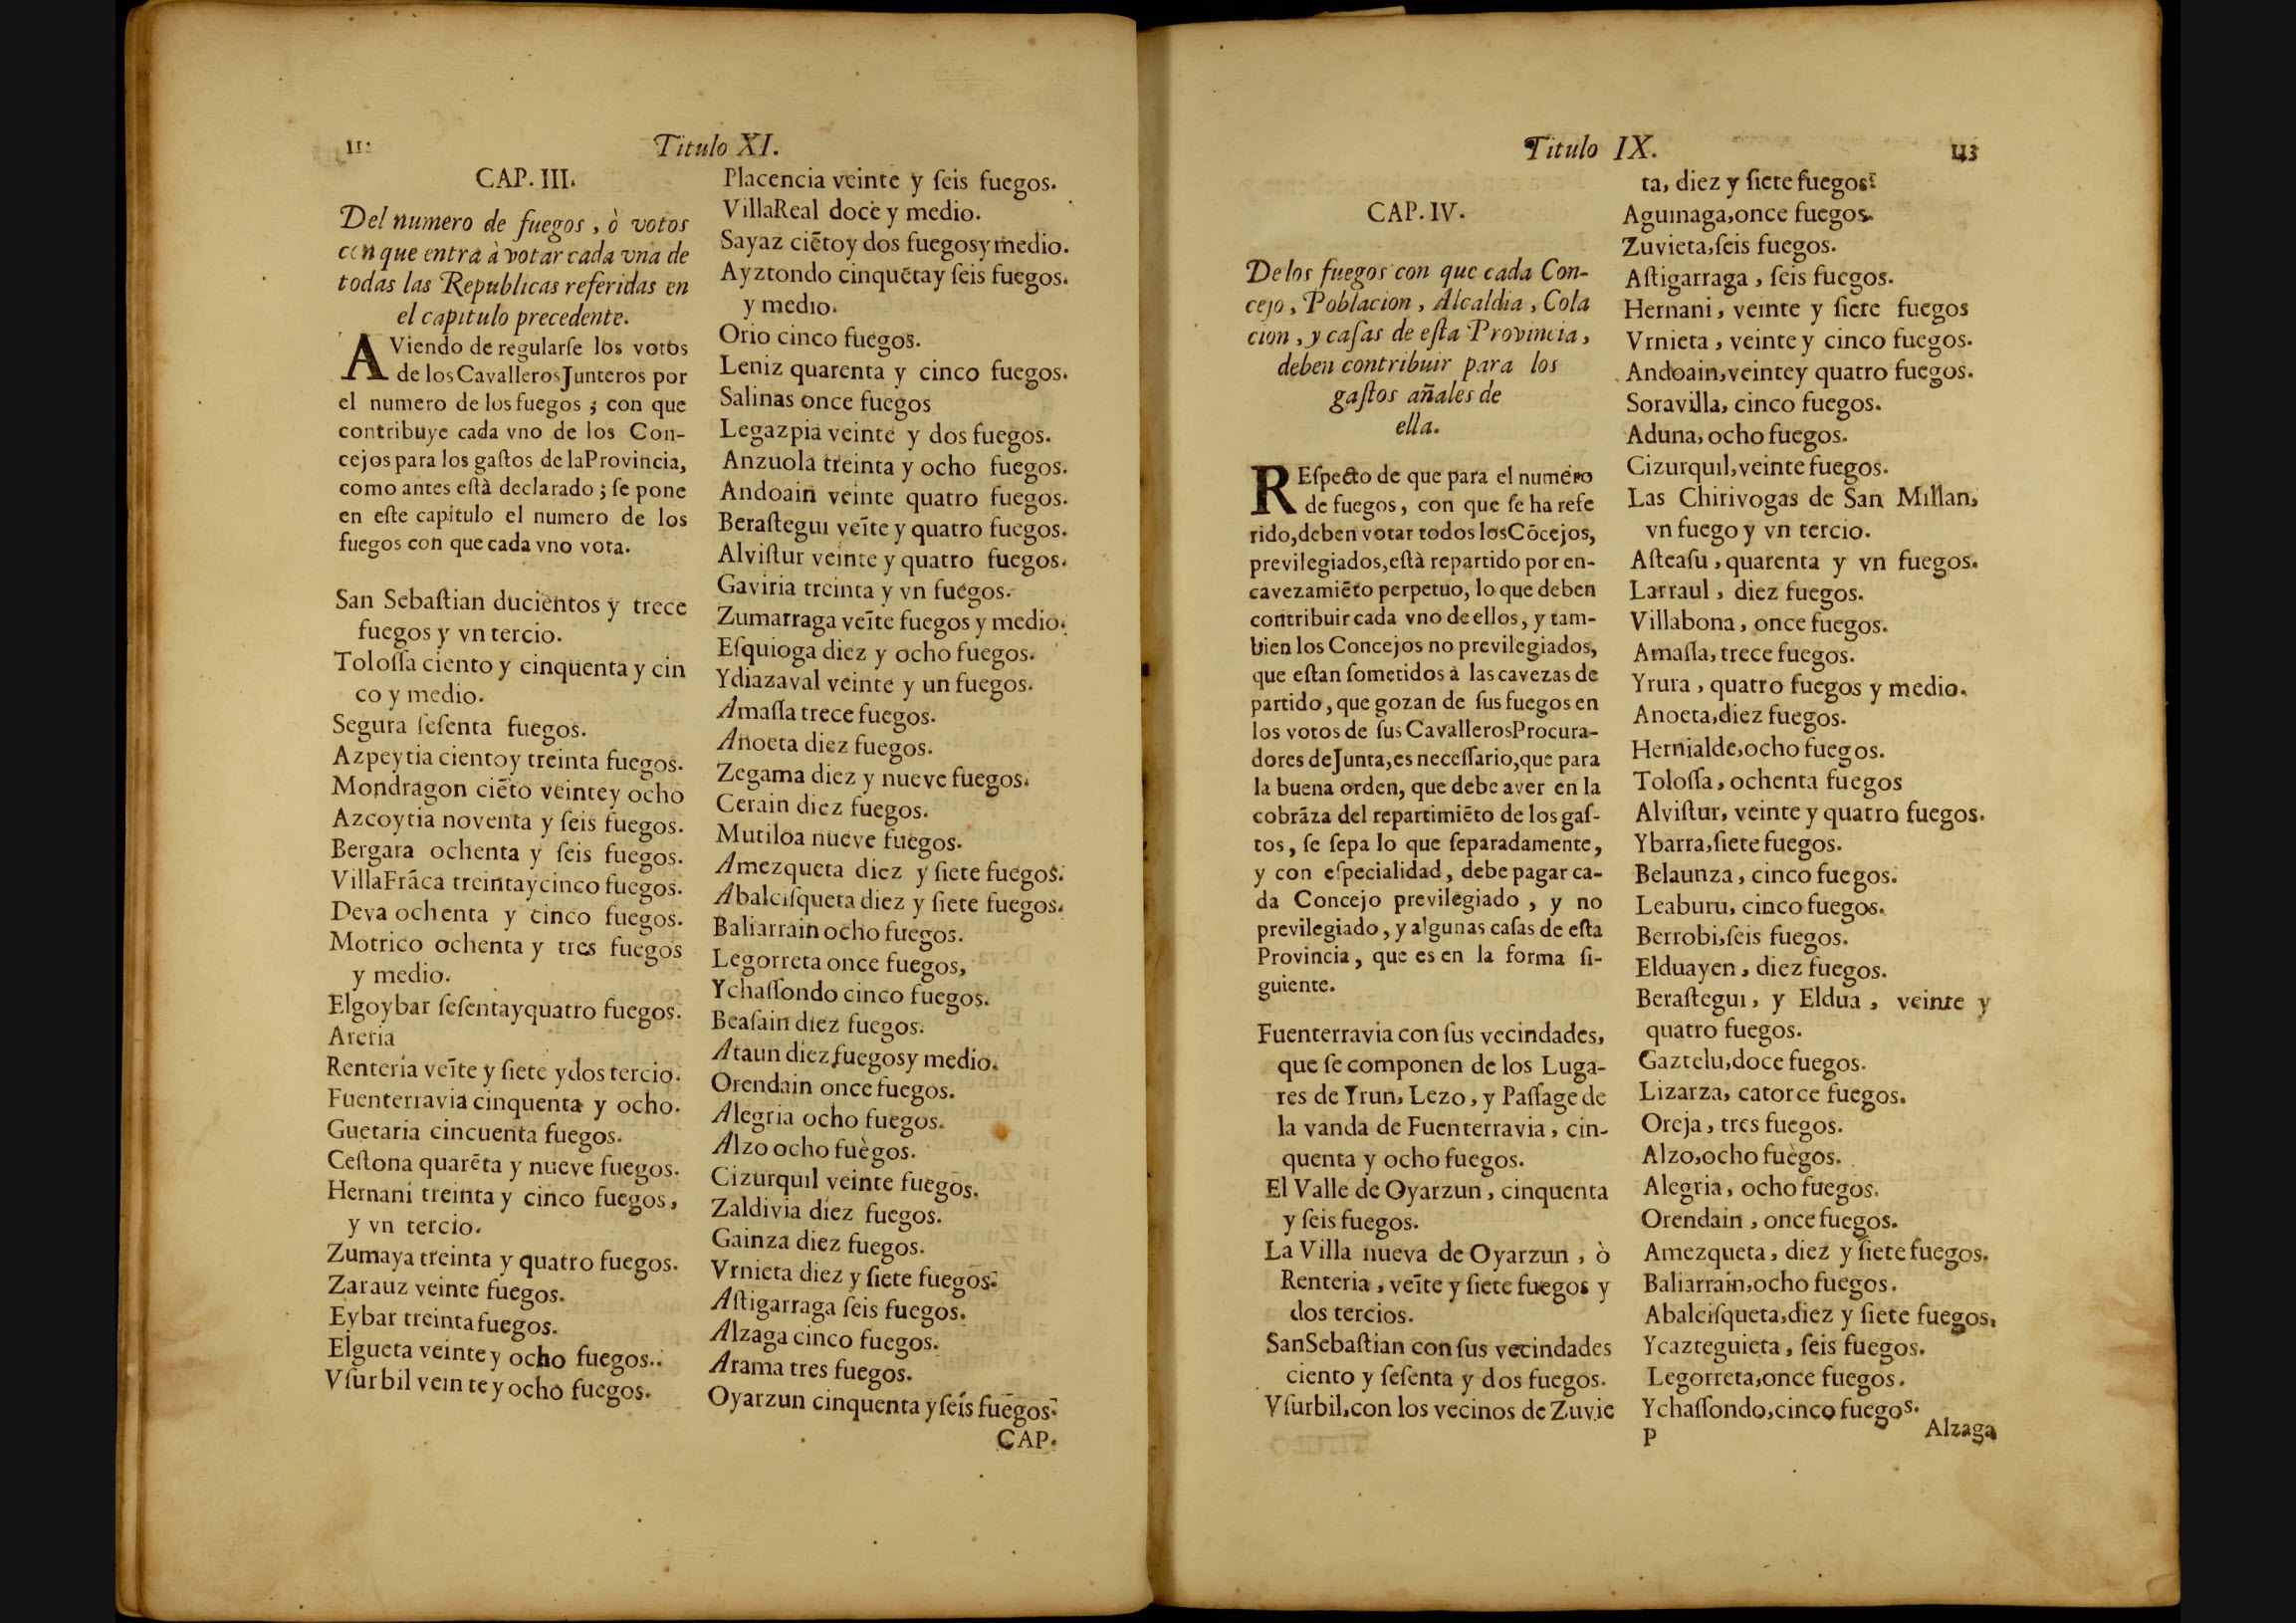 Titulo XI.
CAP. III.
Del numero de fuegos, ò votos
con que entra à votar cada vna de
todas las Republicas referidas en
el capitulo precedente.
AViendo de regularſe los votos
de los Cavalleros Junteros por
el numero de los fuegos ; con que
contribuye cada vno de los Con-
cejos para los gaſtos de la Provincia,
como antes eſtà declarado ; ſe pone
en eſte capitulo el numero de los
fuegos con que cada vno vota.
San Sebaſtian ducientos y trece
fuegos y vn tercio.
Toloſſa ciento y cinquenta y cin
co y medio.
Segura ſeſenta fuegos.
Azpeytia ciento y treinta fuegos.
Mondragon ciẽto veinte y ocho
Azcoytia noventa y ſeis fuegos.
Bergara ochenta y ſeis fuegos.
Villa Frãca treinta y cinco fuegos.
Deva ochenta y cinco fuegos.
Motrico ochenta y tres fuegos
y medio.
Elgoybar ſeſenta y quatro fuegos.
Areria
Rentería veĩte y ſiete y dos tercio.
Fuenterravia cinquenta y ocho.
Guetaria cincuenta fuegos.
Ceſtona quarẽta y nueve fuegos.
Hernani treinta y cinco fuegos,
y vn tercio.
Zumaya treinta y quatro fuegos.
Zarauz veinte fuegos.
Eybar treinta fuegos.
Elgueta veinte y ocho fuegos..
Vſurbil veinte y ocho fuegos.
Placencia veinte y ſeis fuegos.
Villa Real doce y medio.
Sayaz ciẽto y dos fuegos y medio.
Ayztondo cinquẽta y ſeis fuegos.
y medio.
Orio cinco fuegos.
Leniz quarenta y cinco fuegos.
Salinas once fuegos
Legazpia veinte y dos fuegos.
Anzuola treinta y ocho fuegos.
Andoain veinte quatro fuegos.
Beraſtegui veĩte y quatro fuegos.
Alviſtur veinte y quatro fuegos.
Gaviria treinta y vn fuegos.
Zumarraga veĩte fuegos y medio.
Eſquioga diez y ocho fuegos.
Ydiazaval veinte y un fuegos.
Amaſſa trece fuegos.
Anoeta diez fuegos.
Zegama diez y nueve fuegos.
Cerain diez fuegos.
Mutiloa nueve fuegos.
Amezqueta diez y ſiete fuegos.
Abalciſqueta diez y ſiete fuegos.
Baliarrain ocho fuegos.
Legorreta once fuegos,
Ychaſſondo cinco fuegos.
Beaſain diez fuegos.
Ataun diez fuegos y medio.
Orendain once fuegos.
Alegria ocho fuegos.
Alzo ocho fuègos.
Cizurquil veinte fuegos.
Zaldivia diez fuegos.
Gainza diez fuegos.
Vrnieta diez y ſiete fuegos.
Aſtigarraga ſeis fuegos.
Alzaga cinco fuegos.
Arama tres fuegos.
Oyarzun cinquenta y ſeis fuegos.
CAP.
Titulo IX.
113
CAP. IV.
De los fuegos con que cada Con-
cejo, Poblacion, Alcaldia, Cola
cion, y caſas de eſta Provincia,
deben contribuir para los
gaſtos añales de
ella.
REſpecto de que para el numéro
de fuegos, con que ſe ha refe
rido, deben votar todos los Cõcejos,
previlegiados, eſtà repartido por en-
cavezamiẽto perpetuo, lo que deben
contribuir cada vno de ellos, y tam-
bien los Concejos no previlegiados,
que eſtan ſometidos à las cavezas de
partido, que gozan de ſus fuegos en
los votos de ſus Cavalleros Procura-
dores de Junta, es neceſſario, que para
la buena orden, que debe aver en la
cobrãza del repartimiẽto de los gaſ-
tos, ſe ſepa lo que ſeparadamente,
y con eſpecialidad, debe pagar ca-
da Concejo previlegiado, y no
previlegiado, y algunas caſas de eſta
Provincia, que es en la forma ſi-
guiente.
Fuenterravia con ſus vecindades,
que ſe componen de los Luga-
res de Yrun, Lezo, y Paſſage de
la vanda de Fuenterravia, cin-
quenta y ocho fuegos.
El Valle de Oyarzun, cinquenta
y ſeis fuegos.
La Villa nueva de Oyarzun, ò
Renteria, veĩte y ſiete fuegos y
dos tercios.
San Sebaſtian con ſus vecindades
ciento y ſeſenta y dos fuegos.
Vſurbil, con los vecinos de Zuvie
ta, diez y ſiete fuegos.
Aguinaga, once fuegos.
Zuvieta, ſeis fuegos.
Aſtigarraga, ſeis fuegos.
Hernani, veinte y ſiete fuegos
Vrnieta, veinte y cinco fuegos.
Andoain, veinte y quatro fuegos.
Soravilla, cinco fuegos.
Aduna, ocho fuegos.
Cizurquil, veinte fuegos.
Las Chirivogas de San Millan,
vn fuego y vn tercio.
Aſteaſu, quarenta y vn fuegos.
Larraul, diez fuegos.
Villabona, once fuegos.
Amaſſa, trece fuegos.
Yrura, quatro fuegos y medio.
Anoeta, diez fuegos.
Hernialde, ocho fuegos.
Toloſſa, ochenta fuegos
Alviſtur, veinte y quatro fuegos.
Ybarra, ſiete fuegos.
Belaunza, cinco fuegos.
Leaburu, cinco fuegos.
Berrobi, ſeis fuegos.
Elduayen, diez fuegos.
Beraſtegui, y Eldua, veinte y
quatro fuegos.
Gaztelu, doce fuegos.
Lizarza, catorce fuegos.
Oreja, tres fuegos.
Alzo, ocho fuègos.
Alegria, ocho fuegos.
Orendain, once fuegos.
Amezqueta, diez y ſiete fuegos.
Baliarrain, ocho fuegos.
Abalciſqueta, diez y ſiete fuegos.
Ycazteguieta, ſeis fuegos.
Legorreta, once fuegos.
Ychaſſondo, cinco fuegos.
P
Alzaga